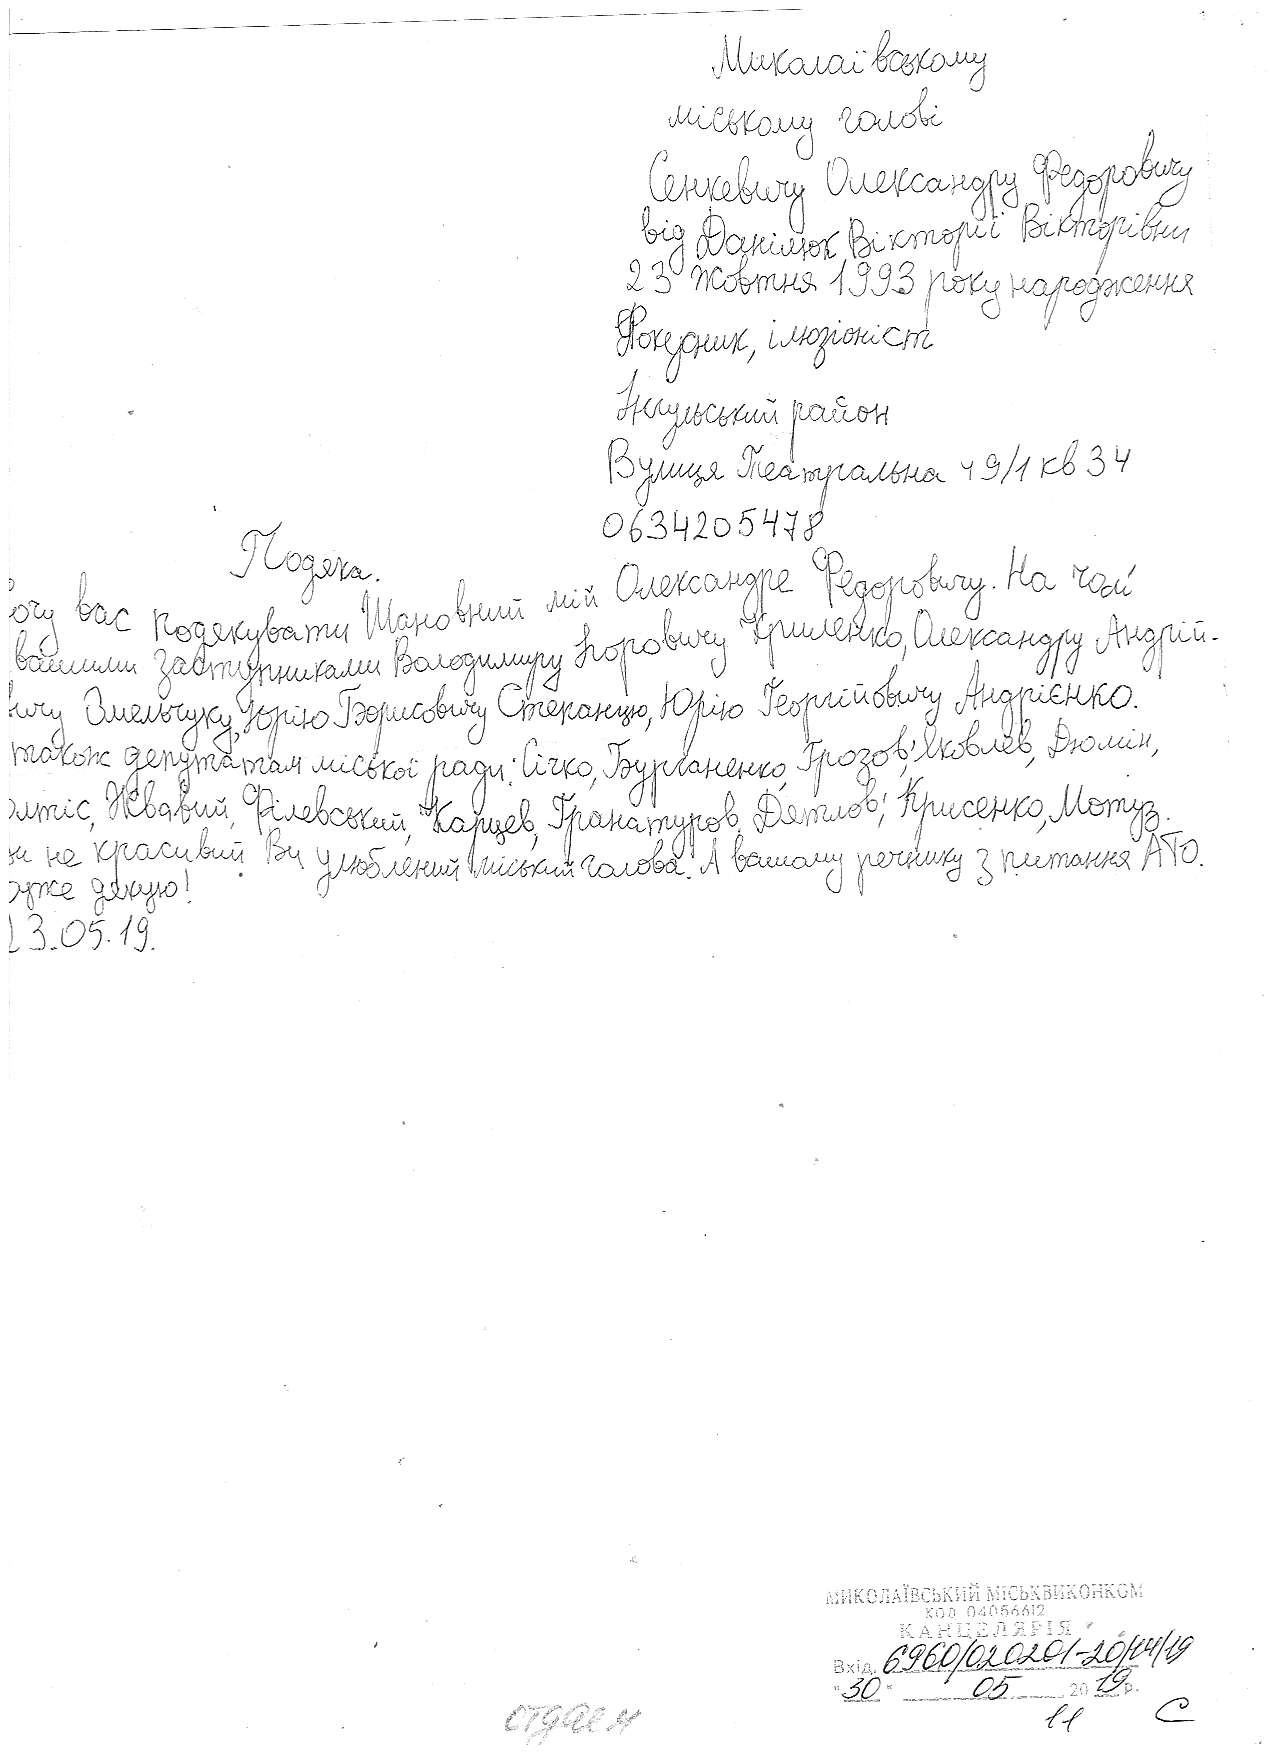 Миколаївському
міському голові
Сенкевичу Олександру Федоровичу
від Данілюк Вікторії Вікторівни
23 Жовтня 1993 року народження
Фокусник, ілюзіоніст
Інгульський район
Вулиця Театральна 49/1 кв 34
0634205478
Подяка.
очу вас подякувати Шановний мій Олександре Федоровичу. На чолі
вашими заступниками Володимиру Ігоровичу Криленко, Олександру Андрій-
ичу Омельчуку, Юрію Борисовичу Степанцю, Юрію Георгійовичу Андрієнко.
також депутатам міської ради: Січко, Бурганенко, Грозов, Яковлев, Дюмін,
олтіс, Жвавий, Філевський, Карцев, Гранатуров, Дятлов, Крисенко, Мотуз.
и не красивий Ви улюблений міський голова. А вашому речнику з питання АТО.
уже дякую!
23.05.19.
МИКОЛАЇВСЬКИЙ МІСЬКВИКОНКОМ
КОД 04056612
КАНЦЕЛЯРІЯ
Вхід. 6960/020201-20/14/19
"30" 05 2019 р.
11 С